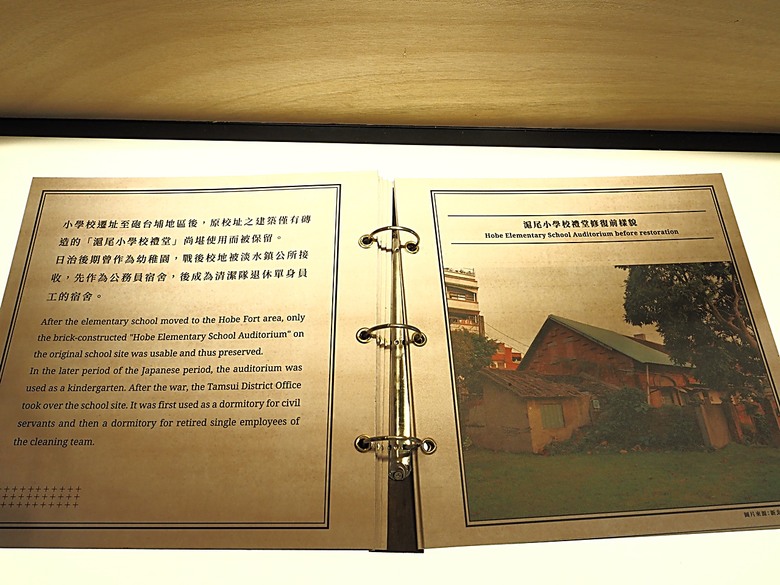 小學校遷址至砲台埔地區後，原校址之建築僅有磚
造的「滬尾小學校禮堂」尚堪使用而被保留。
日治後期曾作為幼稚園，戰後校地被淡水鎮公所接
收，先作為公務員宿舍，後成為清潔隊退休單身員
工的宿舍。
After the elementary school moved to the Hobe Fort area, only
the brick-constructed "Hobe Elementary School Auditorium" on
the original school site was usable and thus preserved.
In the later period of the Japanese period, the auditorium was
used as a kindergarten. After the war, the Tamsui District Office
took over the school site. It was first used as a dormitory for civil
servants and then a dormitory for retired single employees of
the cleaning team.
滬尾小學校禮堂修復前樣貌
Hobe Elementary School Auditorium before restoration
圖片來源：新北